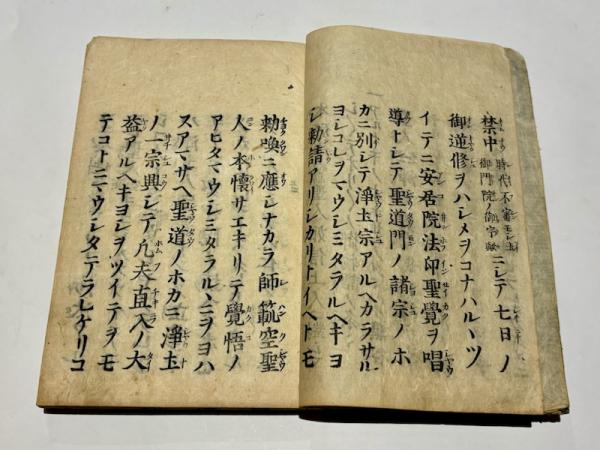 禁中時代不審モシ土御門院ノ御宇歟ニシテ七日ノ
御逆修ヲハシメヲコナハルヽツ
イテニ安居院法印聖覺ヲ唱
導トシテ聖道門ノ諸宗ノホ
カニ別シテ淨土宗アルヘカラサル
ヨシコレヲマウシミタラルヘキヨ
シ勅請アリシカリトイヘトモ
勅喚ニ應シナカラ師範空聖
人ノ本懷サエキリテ覺悟ノ
アヒタマウシミタラルヽニヲヨハ
スアマサヘ聖道ノホカニ淨土
ノ一宗興シテ凡夫直入ノ大
益アルヘキヨシヲツイテヲモ
テコトニマウシタテラレケリコ